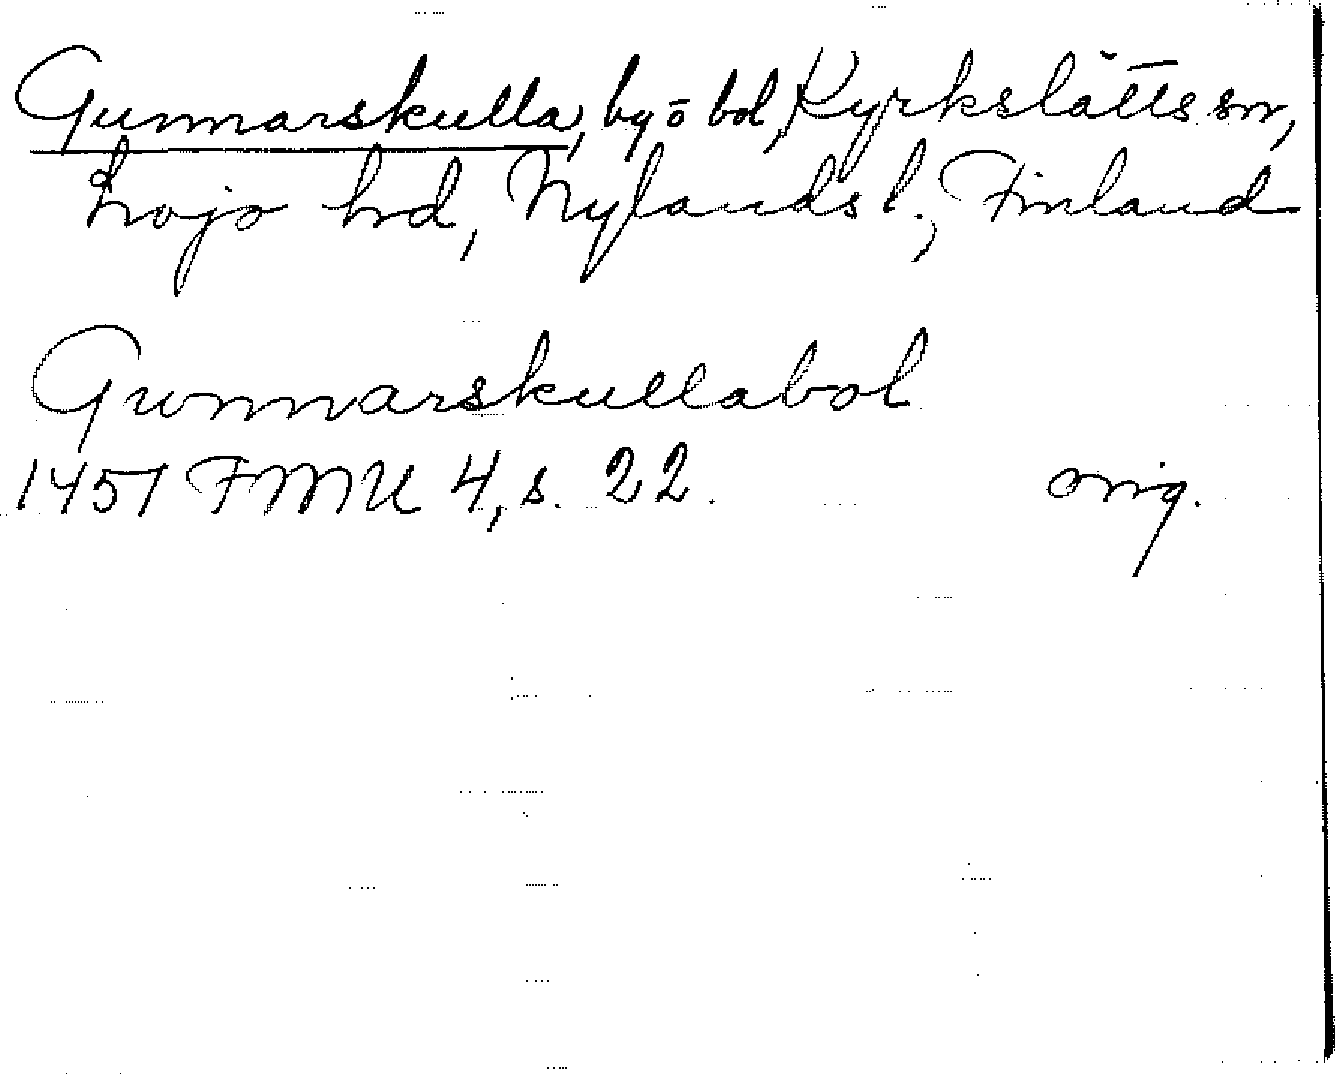 Gunnarskulla, by ō bol, Kyrkslätts sn,
Lojo hd, Nylands l., Finland
Gunnarskullabol
1451 FMU 4, s. 22. orig.